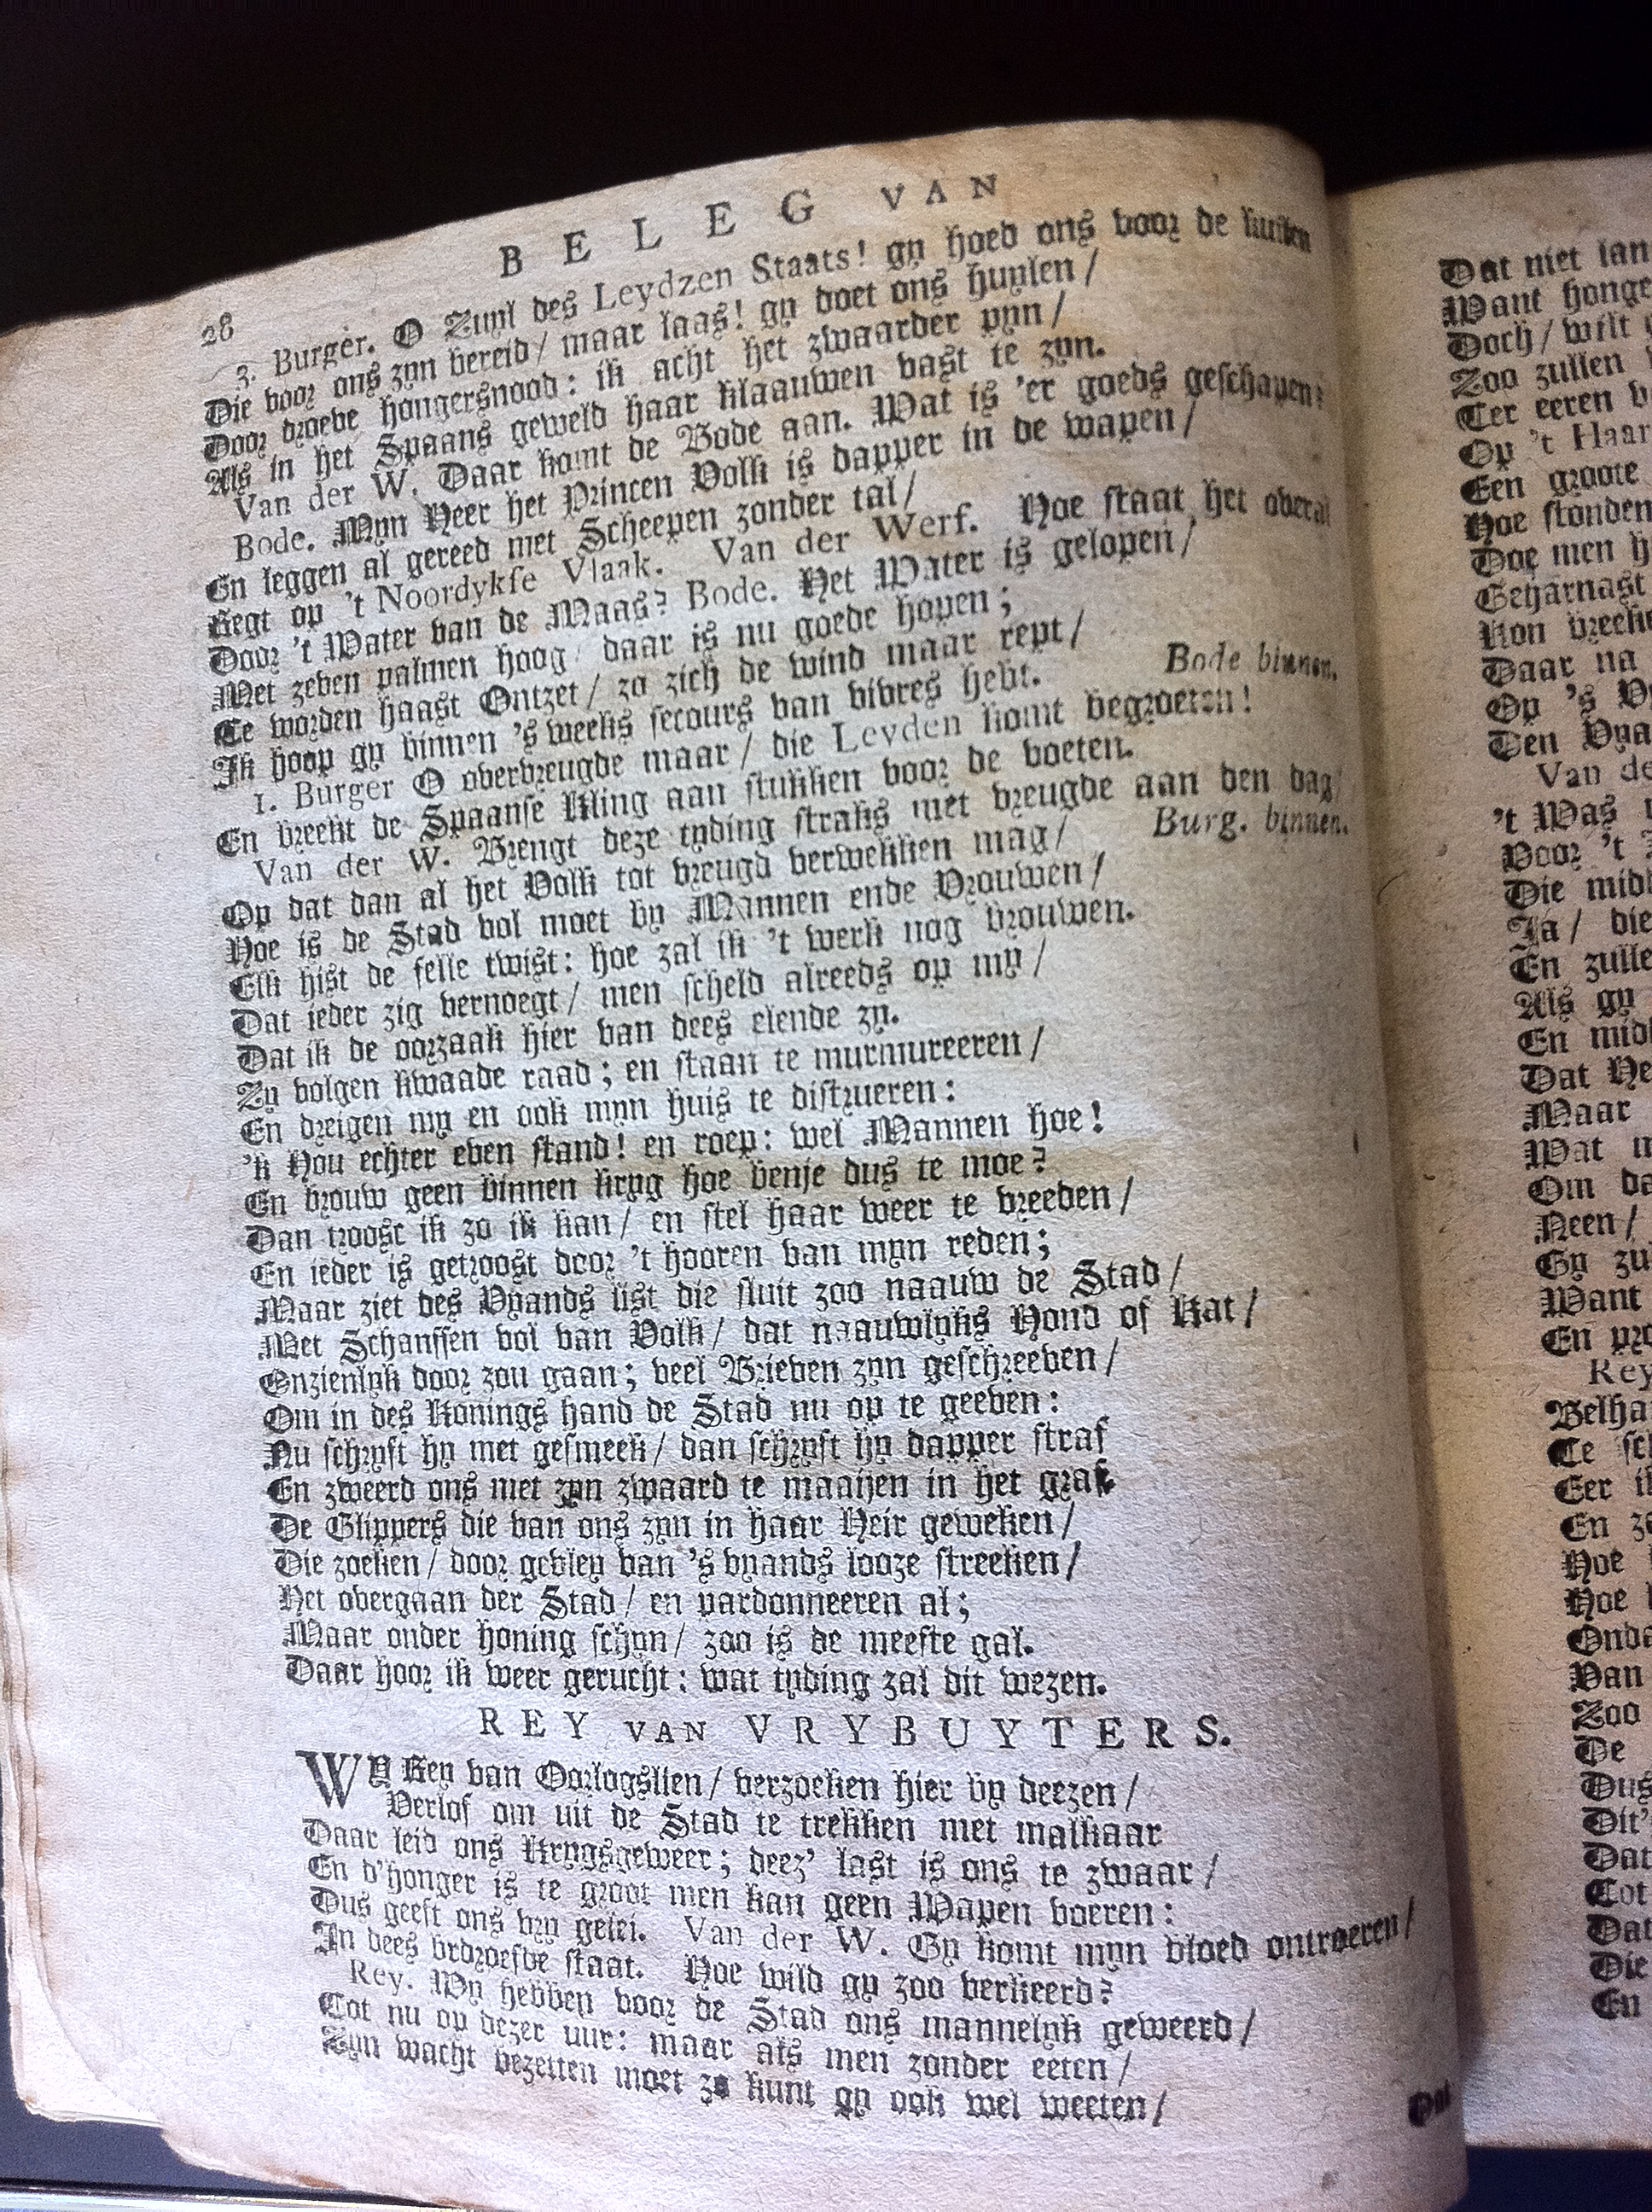 28 BELEG VAN
3. Burger. O Zuyl des Leydzen Staats! gy hoed ons voor de kuilen
Die voor ons zyn bereid/ maar laas! gy doet ons huylen/
Door droeve hongersnood: ik acht het zwaarder pyn/
Als in het Spaans geweld haar klaauwen vast te zyn.
Van der W. Daar komt de Bode aan. Wat is 'er goeds geschapen?
Bode. Myn Heer het Princen Volk is dapper in de wapen/
En leggen al gereed met Scheepen zonder tal/
Regt op 't Noordykse Vlaak. Van der Werf. Hoe staat het overal
Door 't Water van de Maas? Bode. Het Water is gelopen/
Met zeven palmen hoog/ daar is nu goede hopen;
Te worden haast Ontzet/ zo zich de wind maar rept/
Ik hoop gy binnen 's weeks secours van vivres hebt. Bode binnen.
1. Burger O overvreugde maar/ die Leyden komt begroeten!
En breekt de Spaanse Kling aan stukken voor de voeten.
Van der W. Brengt deze tyding straks met vreugde aan den dag/
Op dat dan al het Volk tot vreugd verwekken mag/ Burg. binnen.
Hoe is de Stad vol moet by Mannen ende Vrouwen/
Elk hist de felle twist: hoe zal ik 't werk nog brouwen.
Dat ieder zig vernoegt/ men scheld alreeds op my/
Dat ik de oorzaak hier van dees elende zy.
Zy volgen kwaade raad; en staan te murmureeren/
En dreigen my en ook myn huis te distrueren:
'k Hou echter even stand! en roep: wel Mannen hoe!
En brouw geen binnen kryg hoe benje dus te moe?
Dan troost ik zo ik kan/ en stel haar weer te vreeden/
En ieder is getroost door 't hooren van myn reden;
Maar ziet des Vyands list die sluit zoo naauw de Stad/
Met Schanssen vol van Volk/ dat naauwlyks Hond of Kat/
Onzienlyk door zou gaan; veel Brieven zyn geschreeven/
Om in des Konings hand de Stad nu op te geeven:
Nu schryft hy met gesmeek/ dan schryft hy dapper straf
En zweerd ons met zyn zwaard te maaijen in het graf.
De Glippers die van ons zyn in haar Heir geweken/
Die zoeken/ door gevley van 's vyands looze streeken/
Het overgaan der Stad/ en pardonneeren al;
Maar onder honing schyn/ zoo is de meeste gal.
Daar hoor ik weer gerucht: wat tyding zal dit wezen.
REY VAN VRYBUYTERS.
WY Rey van Oorlogslien/ verzoeken hier by deezen/
Verlof om uit de Stad te trekken met malkaar
Daar leid ons Krygsgeweer; deez' last is ons te zwaar/
En d'honger is te groot men kan geen Wapen voeren:
Dus geeft ons vry gelei. Van der W. Gy komt myn bloed ontroeren/
In dees bedroefde staat. Hoe wild gy zoo verkeerd?
Rey. Wy hebben voor de Stad ons mannelyk geweerd/
Tot nu op dezer uur: maar als men zonder eeten/
Zyn wacht bezetten moet zo kunt gy ook wel weeten/
Dat
Dat niet lan
Want honge
Doch/ wilt
Zoo zullen
Ter eeren v
Op 't Haar
Een groote
Hoe stonden
Doe men h
Geharnast
Kon breeke
Daar na
Op 's V
Den Vya
Van de
't Was
Voor 't
Die midd
Ja/ die
En zulle
Als gy
En midd
Dat He
Maar
Wat
Om da
Neen/
Gy zu
Want
En pro
Rey
Belha
Te sch
Eer i
En zo
Hoe
Hoe
Onda
Van
Zoo
De
Dus
Dit'
Dat
Tot
Dat
Die
En